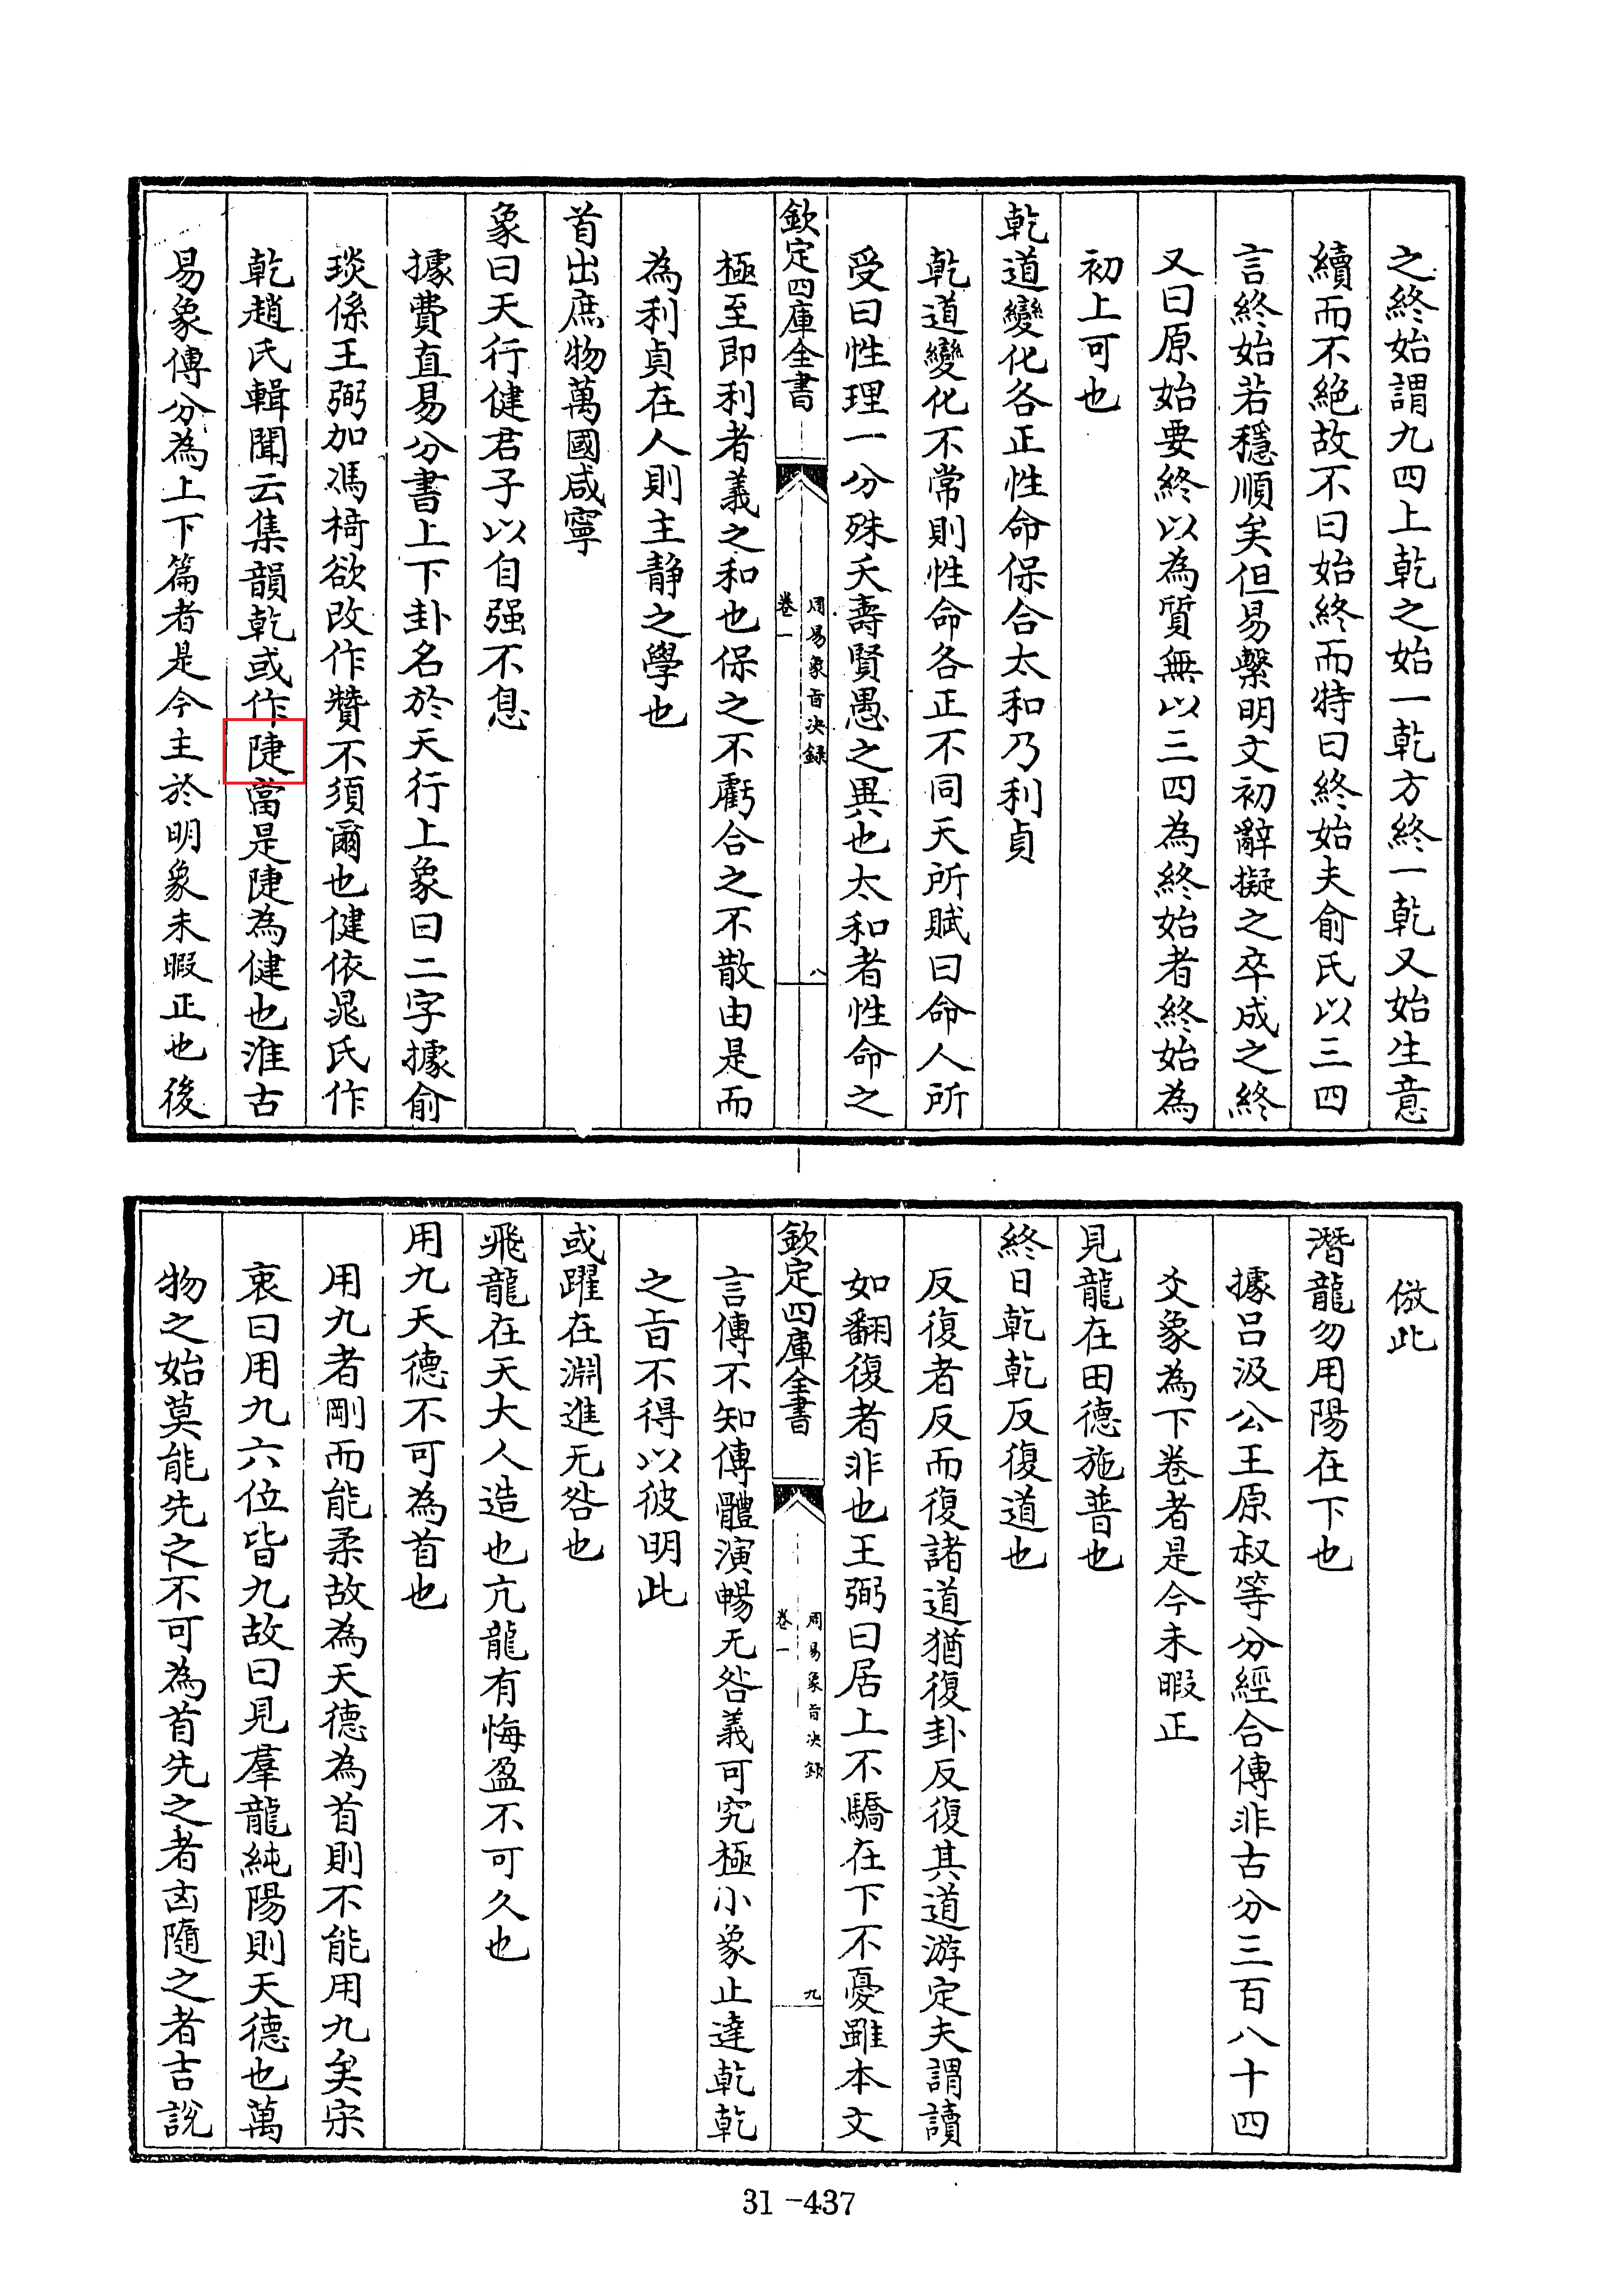 之終始謂九四上乾之始一乾方終一乾又始生意
續而不絶故不曰始終而特曰終始夫俞氏以三四
言終始若穩順矣但易繫明文初辭擬之卒成之終
又曰原始要終以為質無以三四為終始者終始為
初上可也
乾道變化各正性命保合太和乃利貞
乾道變化不常則性命各正不同天所賦曰命人所
受曰性理一分殊夭壽賢愚之異也太和者性命之
欽定四庫全書
周易象旨決録
卷一
八
極至即利者義之和也保之不虧合之不散由是而
為利貞在人則主静之學也
首出庶物萬國咸寧
象曰天行健君子以自强不息
據費直易分書上下卦名於天行上象曰二字據俞
琰係王弼加馮椅欲改作贊不須爾也健依晁氏作
乾趙氏輯聞云集韻乾或作㨗當是㨗為健也淮古
易象傳分為上下篇者是今主於明象未暇正也後
倣此
潛龍勿用陽在下也
據吕汲公王原叔等分經合傳非古分三百八十四
爻象為下卷者是今未暇正
見龍在田德施普也
終日乾乾反復道也
反復者反而復諸道猶復卦反復其道游定夫謂讀
如翻復者非也王弼曰居上不驕在下不憂雖本文
欽定四庫全書
周易象旨決録
卷一
九
言傳不知傳體演暢无咎義可究極小象止達乾乾
之旨不得以彼明此
或躍在淵進无咎也
飛龍在天大人造也亢龍有悔盈不可久也
用九天德不可為首也
用九者剛而能柔故為天德為首則不能用九矣宋
衷曰用九六位皆九故曰見羣龍純陽則天德也萬
物之始莫能先之不可為首先之者凶隨之者吉説
31-437